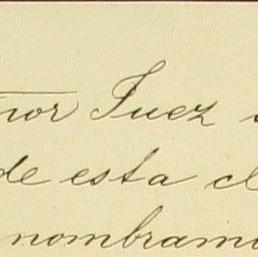 ñor Juez
de esta
nombram